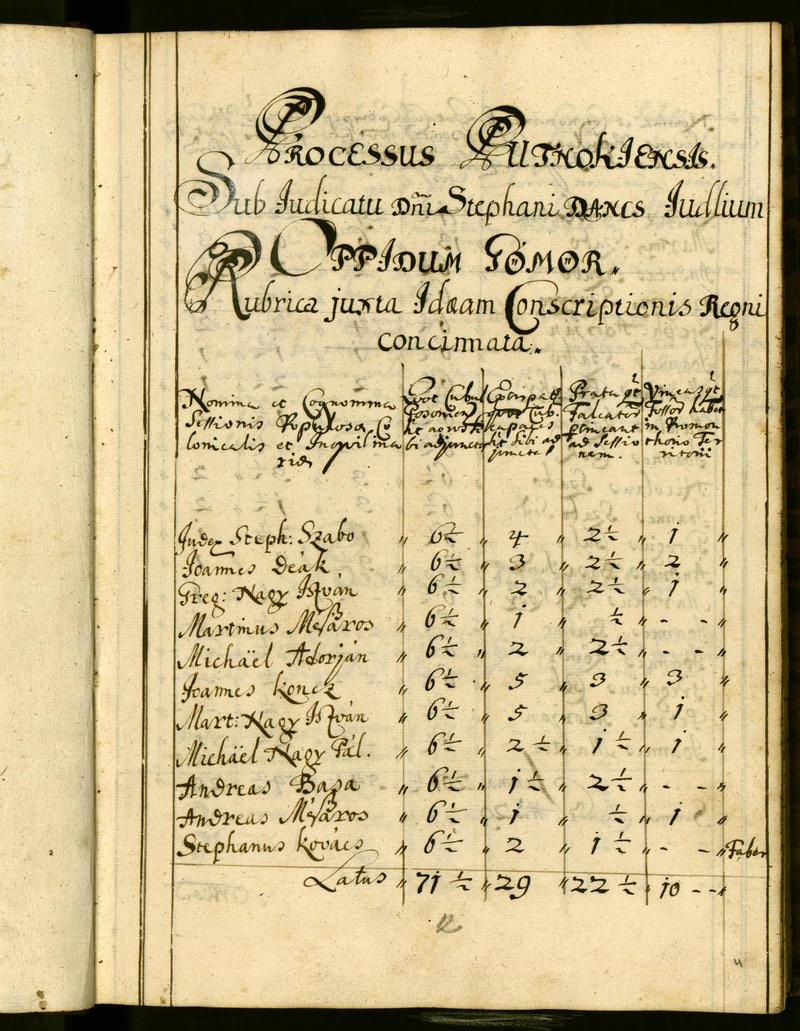 PROCESSUS PUTNOKIENSIS.
Sub Judicatu Dñi Stephani DANCS Judlium
OPPIDUM GÖMÖR.
Rubrica juxta Idæam Conscriptionis Regni
concinnata.
Nomina et Cognomina
Sessionis Populosæ Co
lonicalis et Inquilina
riæ
sibi adjuncta
capaces
sibi ad
juncte
Prata qt
Falcator
ptineant
ad Sessio
nem.
Vineas qt
Fossor habet
in Promon
thorio Ter
ritorii
Judex Steph: Szabo " 6½ " 4 " 2½ " 1 "
Joannes Deák " 6½ " 3 " 2½ " 2 "
Greg: Nagy István " 6½ " 2 " 2½ " 1 "
Martinus Mészáros " 6½ " 1 " ½ " - - "
Michäel Adorján " 6½ " 2 " 2½ " - - "
Joannes Koncz " 6½ " 5 " 3 " 3 "
Mart: Nagy István " 6½ " 5 " 3 " 1 "
Michäel Nagy Pál. " 6½ " 2½ " 1½ " 1 "
Andreas Basa " 6½ " 1½ " 2½ " - - "
Andreas Mészáros " 6½ " 1 " ½ " 1 "
Stephanus Kovács " 6½ " 2 " 1½ " - - " Faber
Latus " 71½ " 29 " 22½ " 10 - - "
12